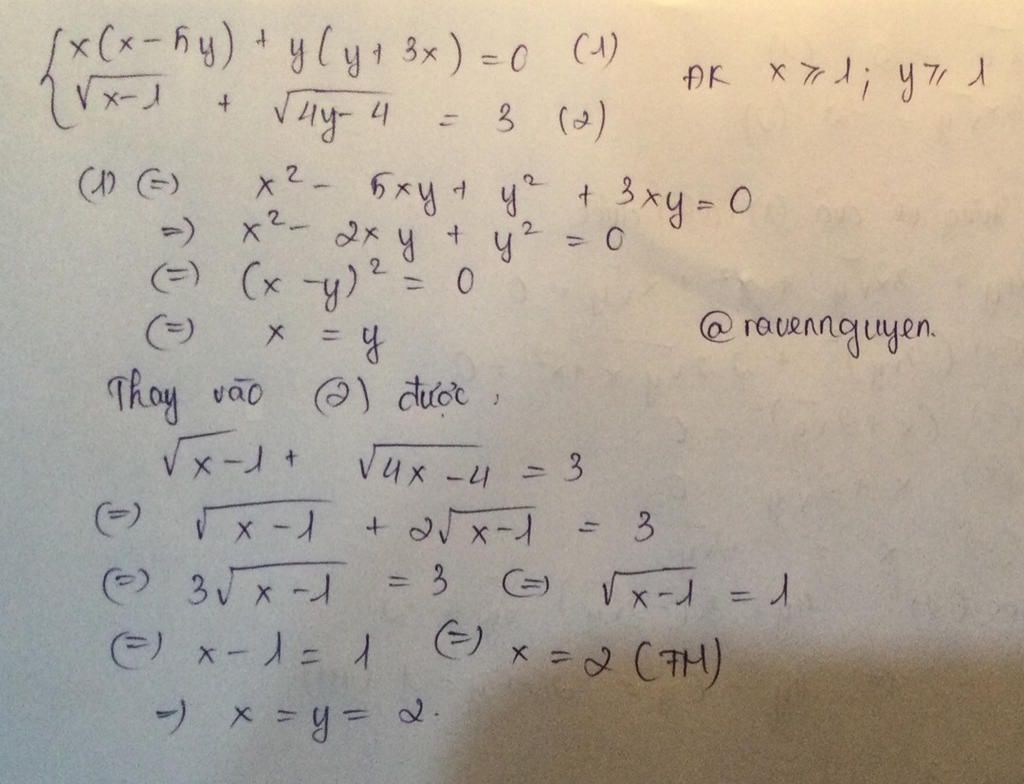 { x(x - 5y) + y(y + 3x) = 0 (1)
√(x-1) + √(4y-4) = 3 (2)
ĐK x ≥ 1; y ≥ 1
(1) (=) x² - 5xy + y² + 3xy = 0
=) x² - 2xy + y² = 0
(=) (x - y)² = 0
(=) x = y
@ravennguyen.
Thay vào (2) được,
√x-1 + √(4x-4) = 3
(=) √(x-1) + 2√(x-1) = 3
(=) 3√(x-1) = 3 (=) √(x-1) = 1
(=) x - 1 = 1 (=) x = 2 (TM)
=) x = y = 2.